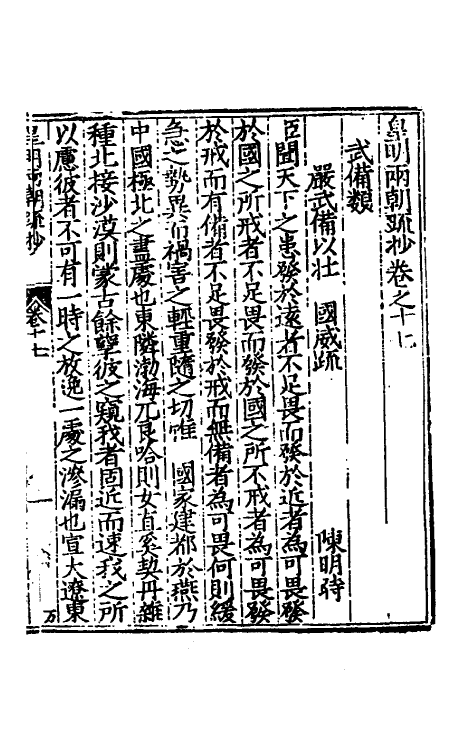 皇明兩朝疏抄卷之十七
武備類
嚴武備以壯 國威疏 陳時明
臣聞天下之患發於遠者不足畏而發於近者為可畏發
於國之所戒者不足畏而發於國之所不戒者為可畏發
於戒而有備者不足畏發於戒而無備者為可畏何則緩
急之勢異而禍害之輕重隨之切惟 國家建都於燕乃
中國極北之盡處也東隣渤海兀良哈則女直奚契丹雜
種北接沙漠則蒙古餘孽彼之窺我者固近而速我之所
以慮彼者不可有一時之放逸一處之滲漏也宣大遼東
皇明兩朝疏抄 卷十七 一